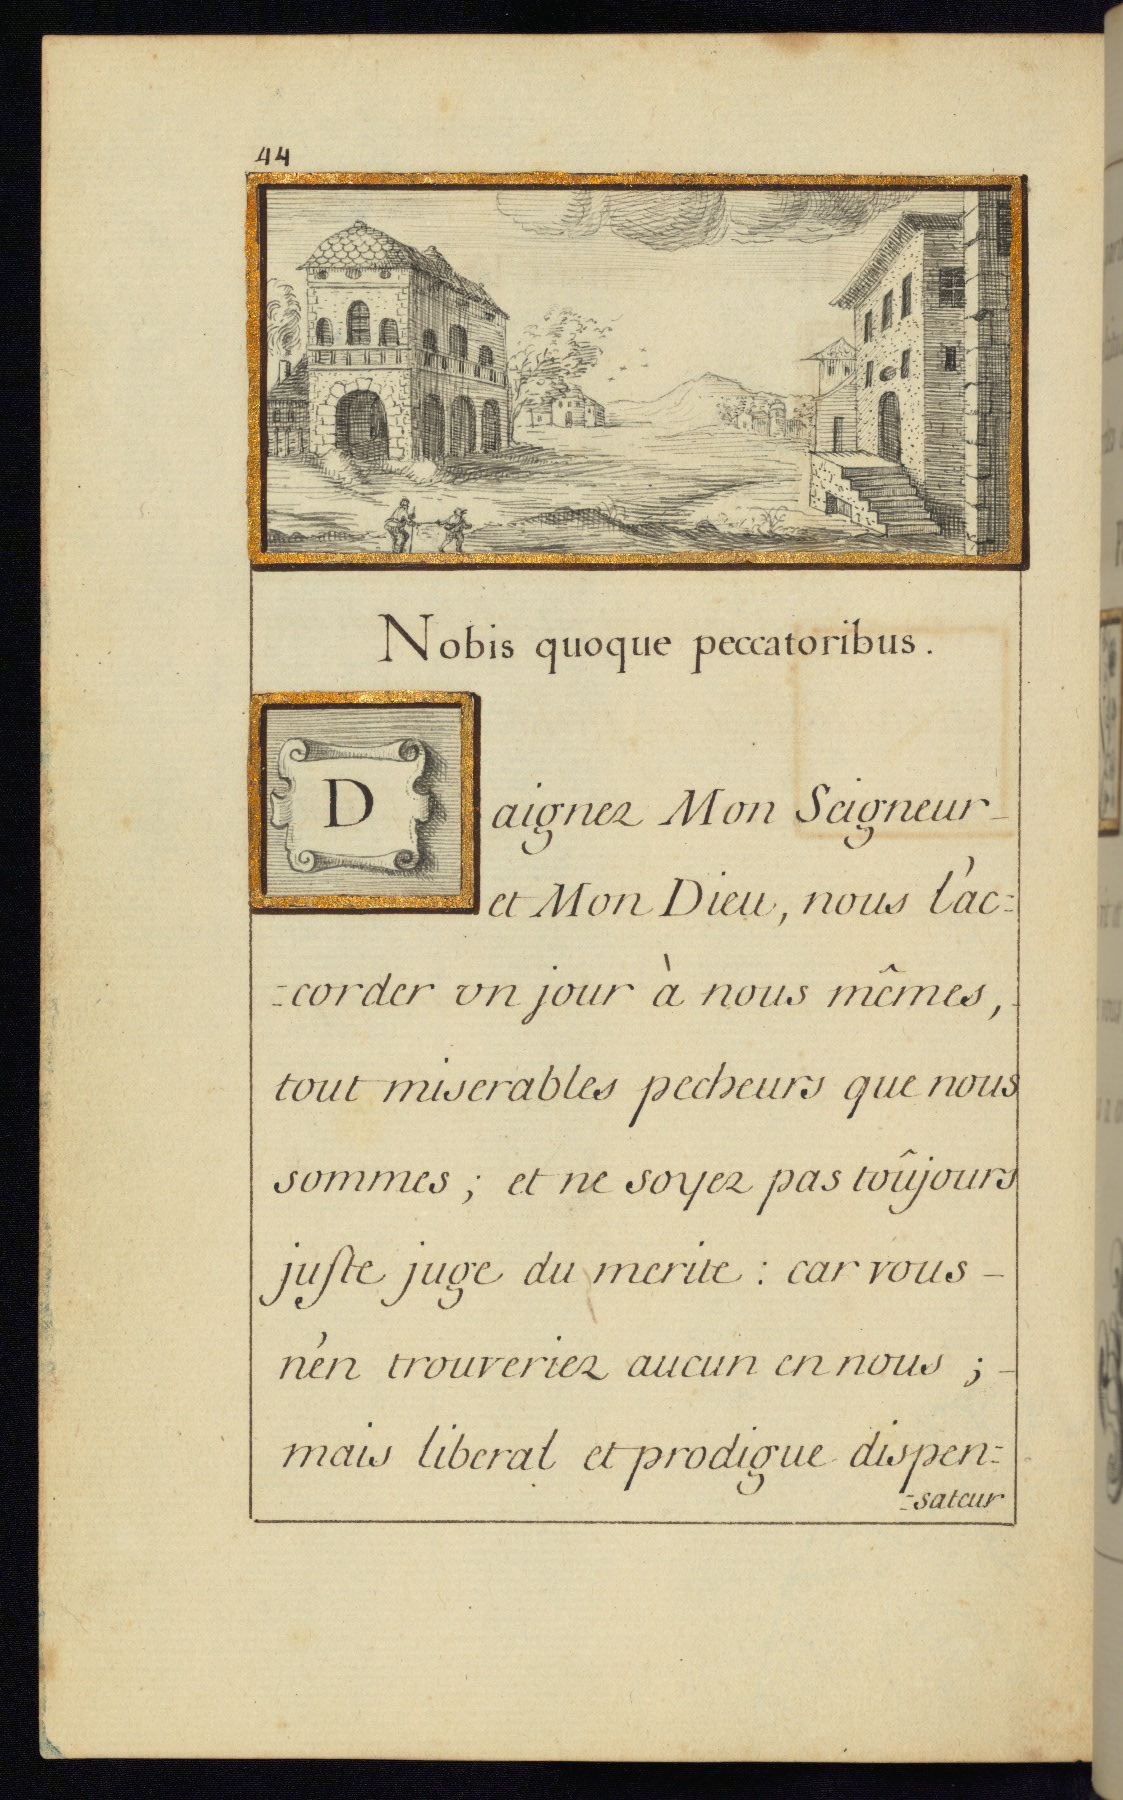 44
Nobis quoque peccatoribus.
Daignez Mon Seigneur
et Mon Dieu, nous l'ac=
=corder vn jour à nous mêmes,
tout miserables pecheurs que nous
sommes ; et ne soyez pas toûjours
juſte juge du merite : car vous
n'en trouveriez aucun en nous ;
mais liberal et prodigue dispen=
=sateur